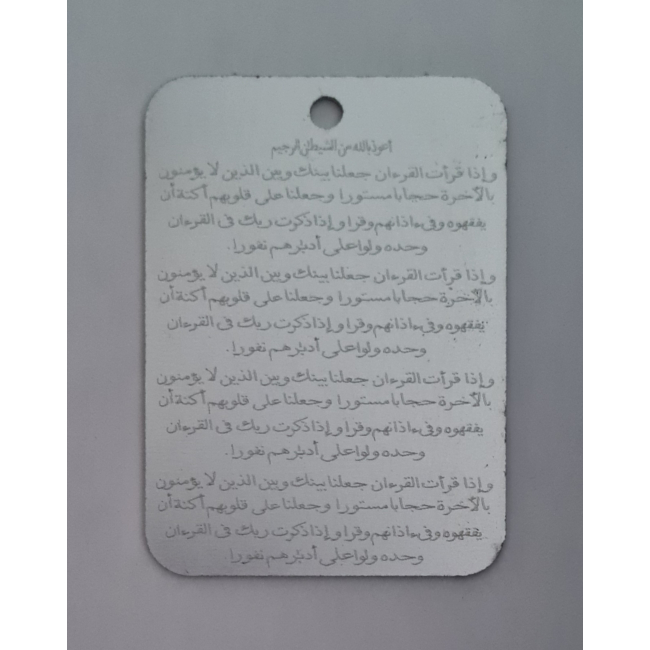 أعوذ بالله من الشيطن الرجيم
وإذا قرأت القرءان جعلنا بينك وبين الذين لا يؤمنون
بالآخرة حجابا مستورا وجعلنا على قلوبهم أكنة أن
يفقهوه وفىءاذانهم وقرا وإذا ذكرت ربك فى القرءان
وحده ولوا على أدبرهم نفورا.
وإذا قرأت القرءان جعلنا بينك وبين الذين لا يؤمنون
بالآخرة حجابا مستورا وجعلنا على قلوبهم أكنة أن
يفقهوه وفىءاذانهم وقرا وإذا ذكرت ربك فى القرءان
وحده ولوا على أدبرهم نفورا.
وإذا قرأت القرءان جعلنا بينك وبين الذين لا يؤمنون
بالآخرة حجابا مستورا وجعلنا على قلوبهم أكنة أن
يفقهوه وفىءاذانهم وقرا وإذا ذكرت ربك فى القرءان
وحده ولوا على أدبرهم نفورا.
وإذا قرأت القرءان جعلنا بينك وبين الذين لا يؤمنون
بالآخرة حجابا مستورا وجعلنا على قلوبهم أكنة أن
يفقهوه وفىءاذانهم وقرا وإذا ذكرت ربك فى القرءان
وحده ولوا على أدبرهم نفورا